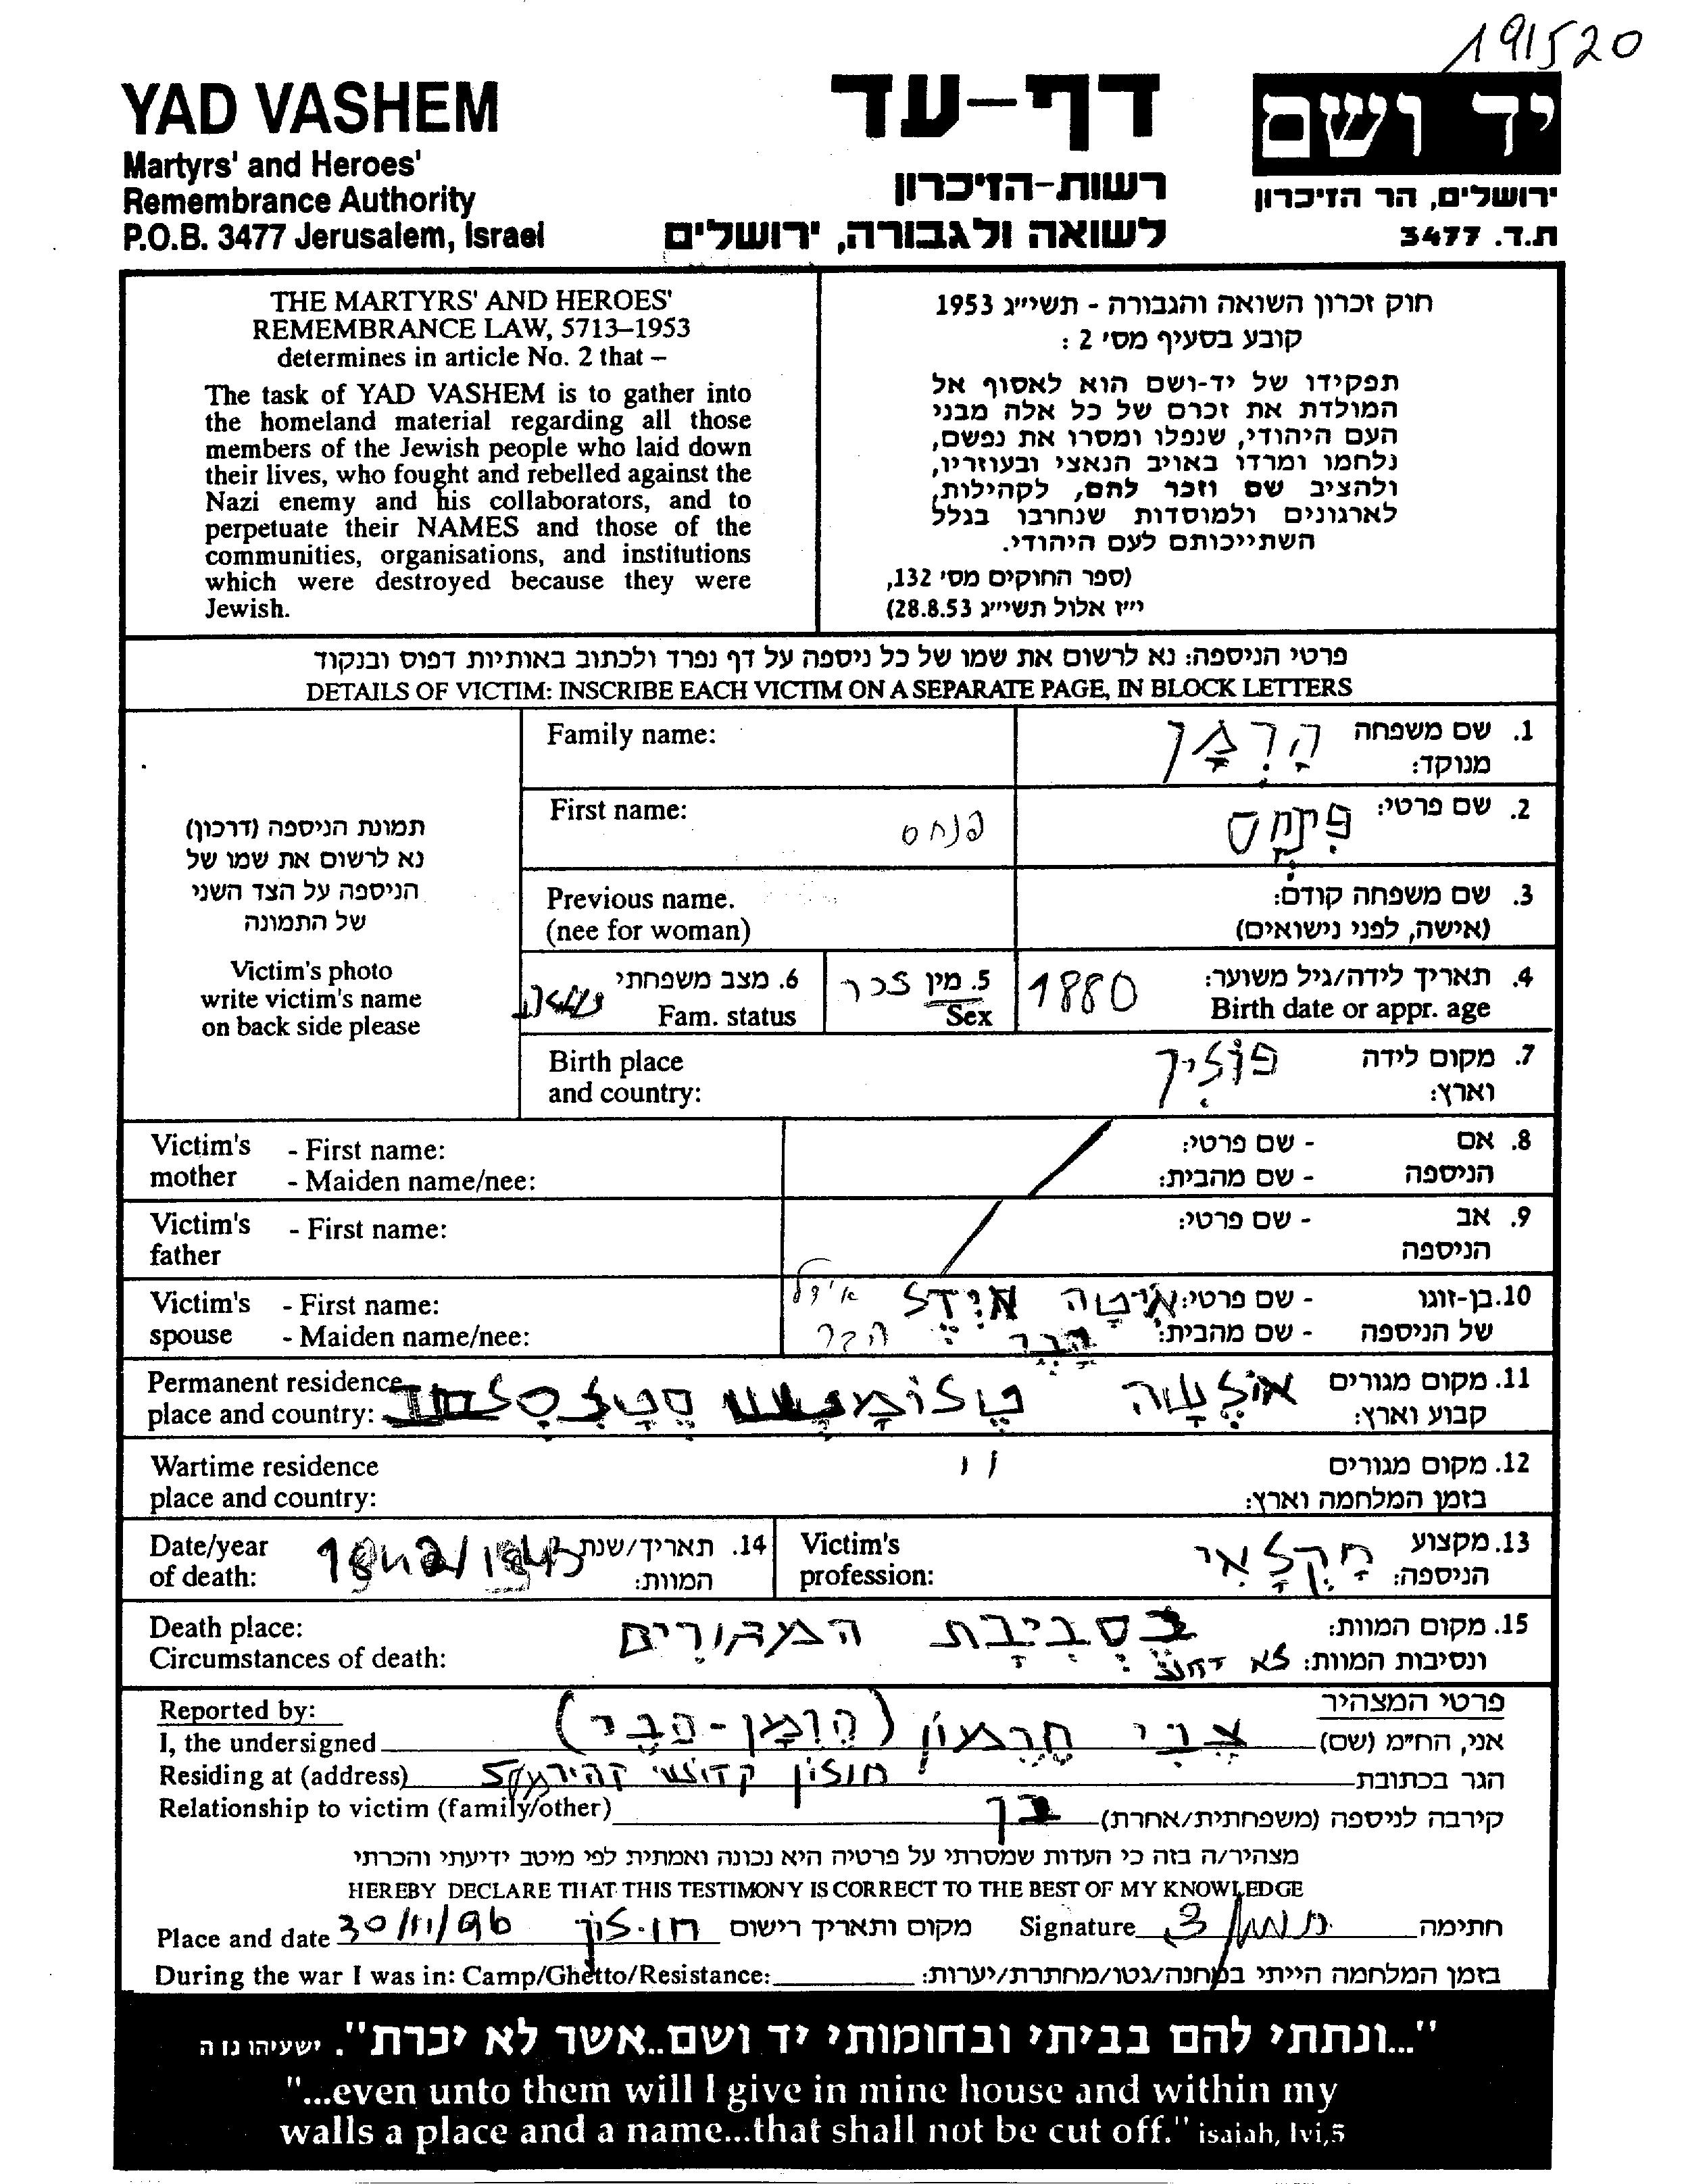 191520
YAD VASHEM
Martyrs' and Heroes'
Remembrance Authority
P.O.B. 3477 Jerusalem, Israel
דף-עד
רשות-הזיכרון
לשואה ולגבורה, ירושלים
יד ושם
ירושלים, הר הזיכרון
ת.ד. 3477
THE MARTYRS' AND HEROES'
REMEMBRANCE LAW, 5713–1953
determines in article No. 2 that –
The task of YAD VASHEM is to gather into
the homeland material regarding all those
members of the Jewish people who laid down
their lives, who fought and rebelled against the
Nazi enemy and his collaborators, and to
perpetuate their NAMES and those of the
communities, organisations, and institutions
which were destroyed because they were
Jewish.
חוק זכרון השואה והגבורה - תשי״ג 1953
קובע בסעיף מס׳ 2 :
תפקידו של יד-ושם הוא לאסוף אל
המולדת את זכרם של כל אלה מבני
העם היהודי, שנפלו ומסרו את נפשם,
נלחמו ומרדו באויב הנאצי ובעוזריו,
ולהציב שם וזכר להם, לקהילות,
לארגונים ולמוסדות שנחרבו בגלל
השתייכותם לעם היהודי.
(ספר החוקים מס׳ 132,
י״ז אלול תשי״ג 28.8.53)
פרטי הניספה: נא לרשום את שמו של כל ניספה על דף נפרד ולכתוב באותיות דפוס ובנקוד
DETAILS OF VICTIM: INSCRIBE EACH VICTIM ON A SEPARATE PAGE, IN BLOCK LETTERS
תמונת הניספה (דרכון)
נא לרשום את שמו של
הניספה על הצד השני
של התמונה
Victim's photo
write victim's name
on back side please
1. שם משפחה
מנוקד:
Family name:
2. שם פרטי: פנחס
First name: פנחס
3. שם משפחה קודם:
(אישה, לפני נישואים)
Previous name.
(nee for woman)
4. תאריך לידה/גיל משוער: 1880
Birth date or appr. age
5. מין זכר
Sex
6. מצב משפחתי נשוי
Fam. status
7. מקום לידה פולין
וארץ:
Birth place
and country:
8. אם - שם פרטי:
הניספה - שם מהבית:
Victim's - First name:
mother - Maiden name/nee:
9. אב - שם פרטי:
הניספה
Victim's - First name:
father
10. בן-זוגו - שם פרטי: איטה אידל אידל
של הניספה - שם מהבית: הבר הבר
Victim's - First name:
spouse - Maiden name/nee:
11. מקום מגורים
קבוע וארץ:
Permanent residence
place and country:
12. מקום מגורים
בזמן המלחמה וארץ: ״
Wartime residence
place and country:
13. מקצוע חקלאי
הניספה:
Victim's
profession:
14. תאריך/שנת
המוות:
Date/year
of death:
15. מקום המוות: בסביבת המגורים
ונסיבות המוות: לא
Death place:
Circumstances of death:
פרטי המצהיר
Reported by:
אני, הח״מ (שם) צבי חרמון (הרמן-הבר)
I, the undersigned
הגר בכתובת חולון קדושי
Residing at (address)
קירבה לניספה (משפחתית/אחרת) בן
Relationship to victim (family/other)
מצהיר/ה בזה כי העדות שמסרתי על פרטיה היא נכונה ואמתית לפי מיטב ידיעתי והכרתי
HEREBY DECLARE THAT THIS TESTIMONY IS CORRECT TO THE BEST OF MY KNOWLEDGE
Place and date 30/11/96 חולון מקום ותאריך רישום Signature חתימה
During the war I was in: Camp/Ghetto/Resistance: בזמן המלחמה הייתי במחנה/גטו/מחתרת/יערות:
"...ונתתי להם בביתי ובחומותי יד ושם..אשר לא יכרת". ישעיהו נו ה
"...even unto them will I give in mine house and within my
walls a place and a name...that shall not be cut off." isaiah, lvi,5